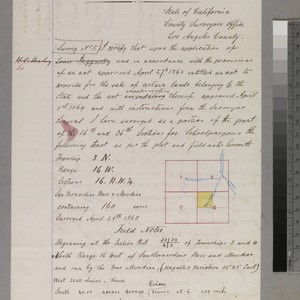 State of California
County Surveyors Office
Los Angeles County.
Survey No 5. I certify that upon the application of
Louis and in accordance with the provisions
of an act approved April 27th 1863 entitled an act to
provide for the sale of certain lands belonging to the
State and the act amendatory thereof approved April
1st 1864 and with instructions from the Surveyor
General I have surveyed as a portion of the grant
of the 16th and 36th Sections for School purposes the
following tract as per the plat and field notes herewith
Township 3 N.
Range 16 W.
Sections 16. N.W. 1/4
San Bernardino Base & Meridian
containing 160 acres
Surveyed April
Field Notes
Beginning at the Section Post of Townships 3 and 4
North Range 16 West of San Bernardino Base and Meridian
and run by the True Meridian (Magnetic Variation East)
West chains
South 40.00 across